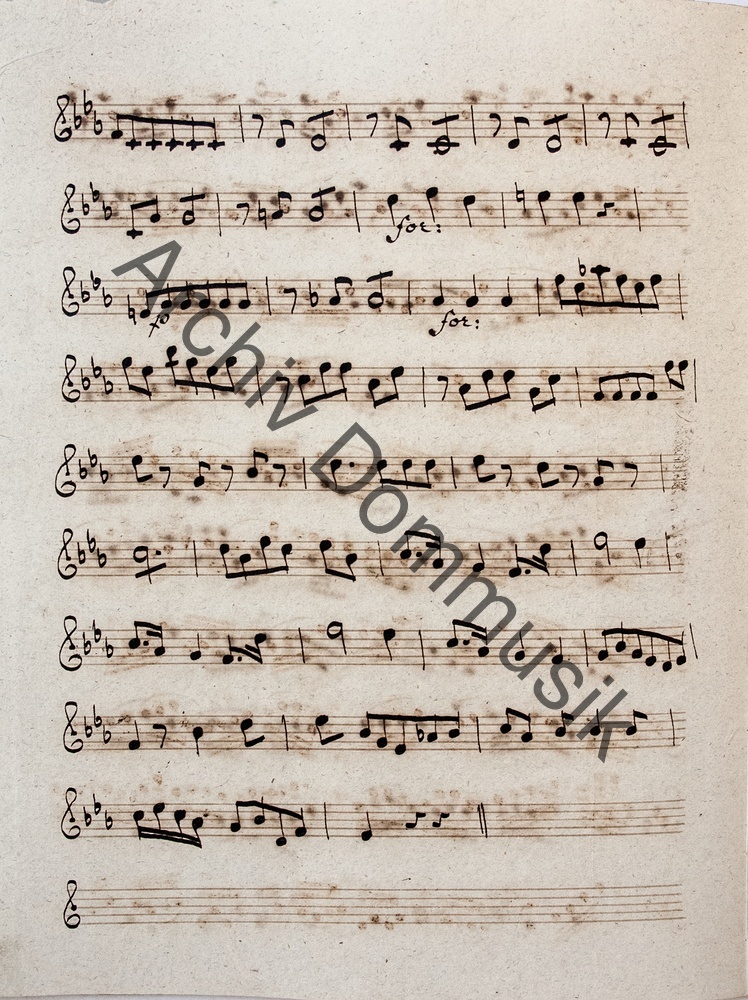 for:
fo
for:
Archiv Dommusik